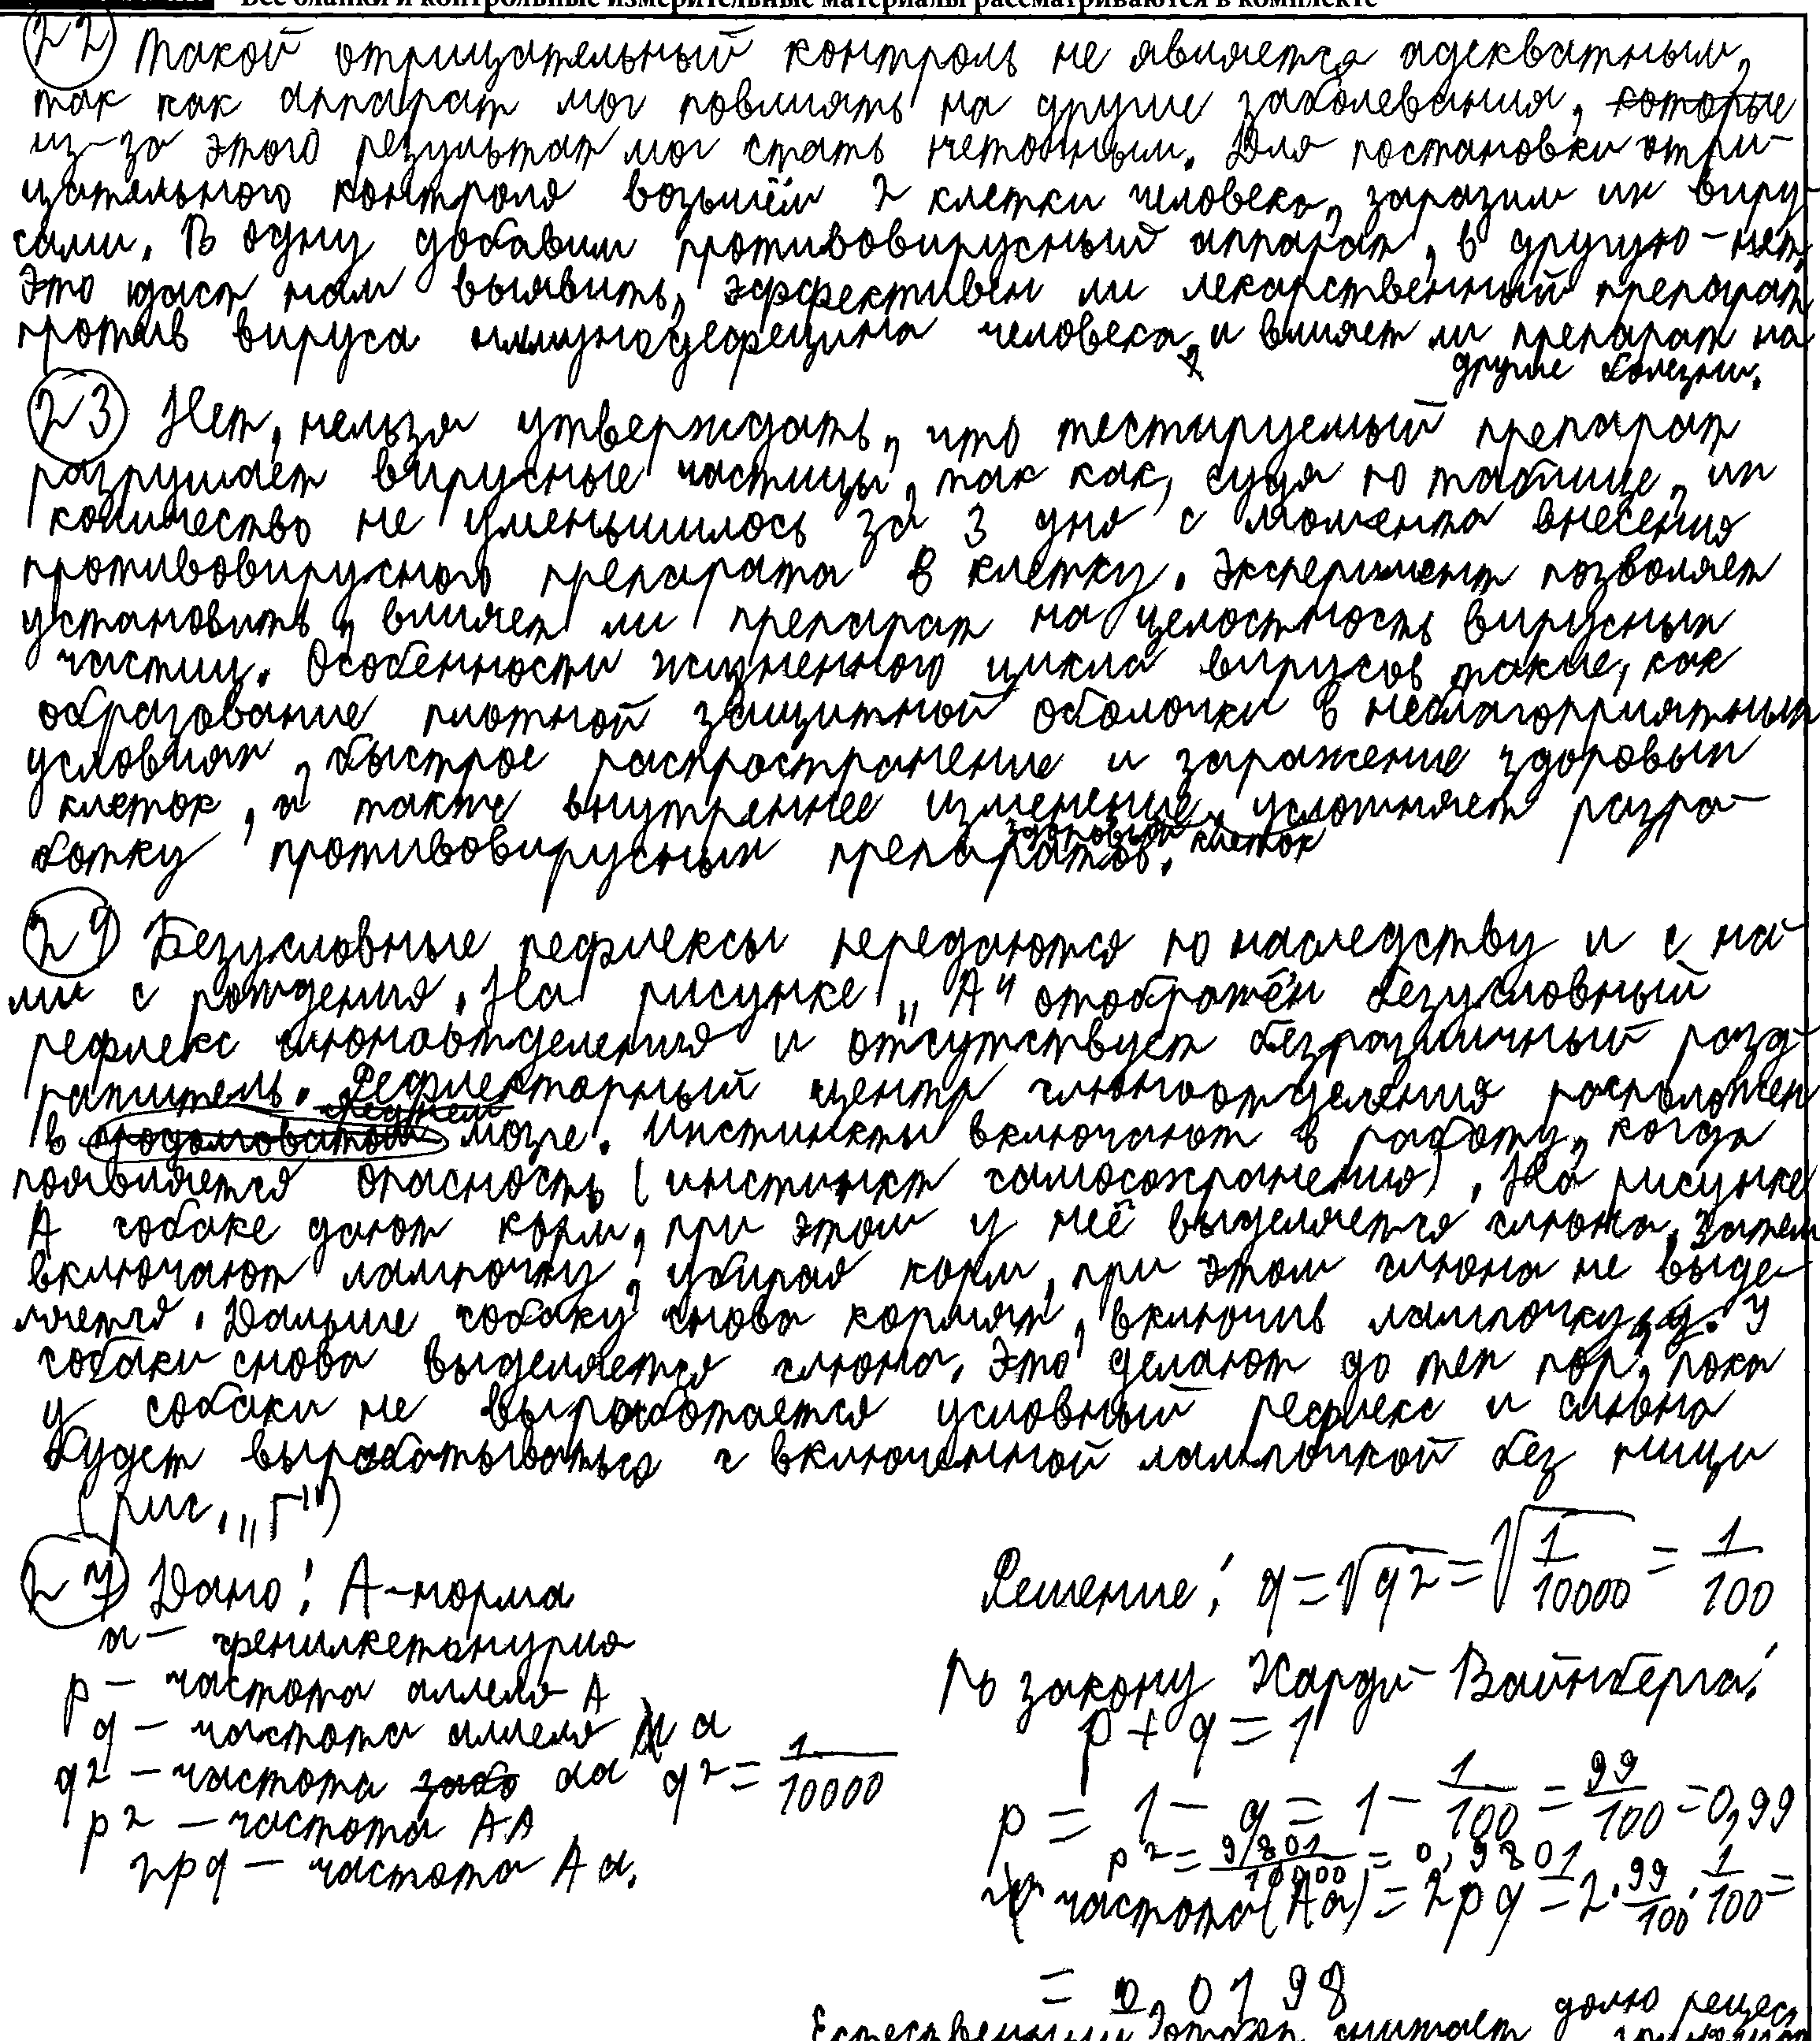 Все бланки и контрольные измерительные материалы рассматриваются в комплекте
22) Такой отрицательный контроль не является адекватным,
так как аппарат мог повлиять на другие заболевания, которые
из-за этого результат мог стать неточным. Для постановки отри-
цательного контроля возьмём 2 клетки человека, заразим их виру-
сами. В одну добавим противовирусный аппарат, в другую - нет.
Это даст нам выявить, эффективен ли лекарственный препарат
против вируса иммунодефецина человека, и влияет ли препарат на
другие болезни.
23) Нет, нельзя утверждать, что тестируемый препарат
разрушает вирусные частицы, так как, судя по таблице, их
количество не уменьшилось за 3 дня с момента внесения
противовирусного препарата в клетку. Эксперимент позволяет
установить, влияет ли препарат на целостность вирусных
частиц. Особенности жизненного цикла вирусов такие, как
образование плотной защитной оболочки в неблагоприятных
условиях, быстрое распространение и заражение здоровых
клеток, а также внутреннее изменение, усложняет разра-
здоровых клеток
ботку противовирусных препаратов.
24) Безусловные рефлексы передаются по наследству и с на-
ми с рождения. На рисунке „А" отображён безусловный
рефлекс слюноотделения и отсутствует безразличный разд-
ражитель. Рефлекторный центр слюноотделения расположен
в продолговатом мозге. Инстинкты включают в работу, когда
появляется опасность (инстинкт самосохранения). На рисунке
А собаке дают корм, при этом у неё выделяется слюна. Затем
включают лампочку, убирая корм, при этом слюна не выде-
ляется. Дальше собаку снова кормят, включив лампочку. У
собаки снова выделяется слюна. Это делают до тех пор, пока
у собаки не выработается условный рефлекс и слюна
будет вырабатываться с включенной лампочкой без пищи
(рис. „Г")
27) Дано: А-норма
а - фенилкетонурия
p - частота аллеля А
q - частота аллеля а
q2 - частота аа q2 = 1/10000
p2 - частота АА
2pq - частота Аа.
Решение: q = √q2 = √1/10000 = 1/100
По закону Харди-Вайнберга:
p + q = 1
p = 1 - q = 1 - 1/100 = 99/100 = 0,99
p2 = 9801/10000 = 0,9801
частота(Аа) = 2pq = 2·99/100·1/100 =
= 0,0198
долю рецесс
Естественный отбор снижает